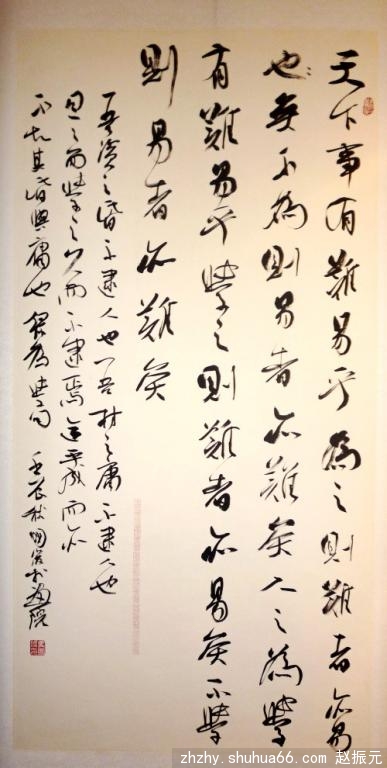 天下事有難易乎為之則難者亦易
也矣不為則易者亦難矣人之為學
有難易乎學之則難者亦易矣不學
則易者亦難矣
吾資之昏不逮人也吾材之庸不逮人也
旦旦而學之久而不逮焉迄乎成而亦
不知其昏與庸也 為學句 壬辰秋
zhzhy.shuhua66.com 赵振元